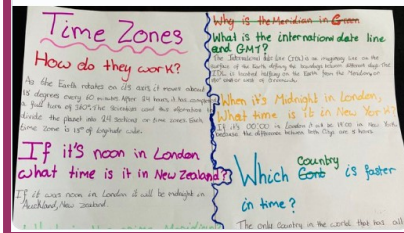 Time Zones
How do they work?
As the Earth rotates on its axis it moves about
15 degrees every 60 minutes. After 24 hours, it has completed
a full turn of 360°. The Scientists used this information to
divide the planet into 24 sections or time zones. Each
time zone is 15° of longitude wide.
If it's noon in London
what time is it in New Zealand?
If it was noon in London it will be midnight in
Auckland, New Zealand.
Why is the Meridian in
What is the international date line
and GMT?
The International Date Line (IDL) is an imaginary line on the
surface of the Earth defining the boundary between different days. The
IDL is located halfway on the Earth from the Meridian or
When it's Midnight in London,
What time is it in New York?
If it's 00:00 in London it will be 19:00 in New York
because the difference between both Cities are 5 hours.
Which Country is faster
in time?
The only Country in the world that has all